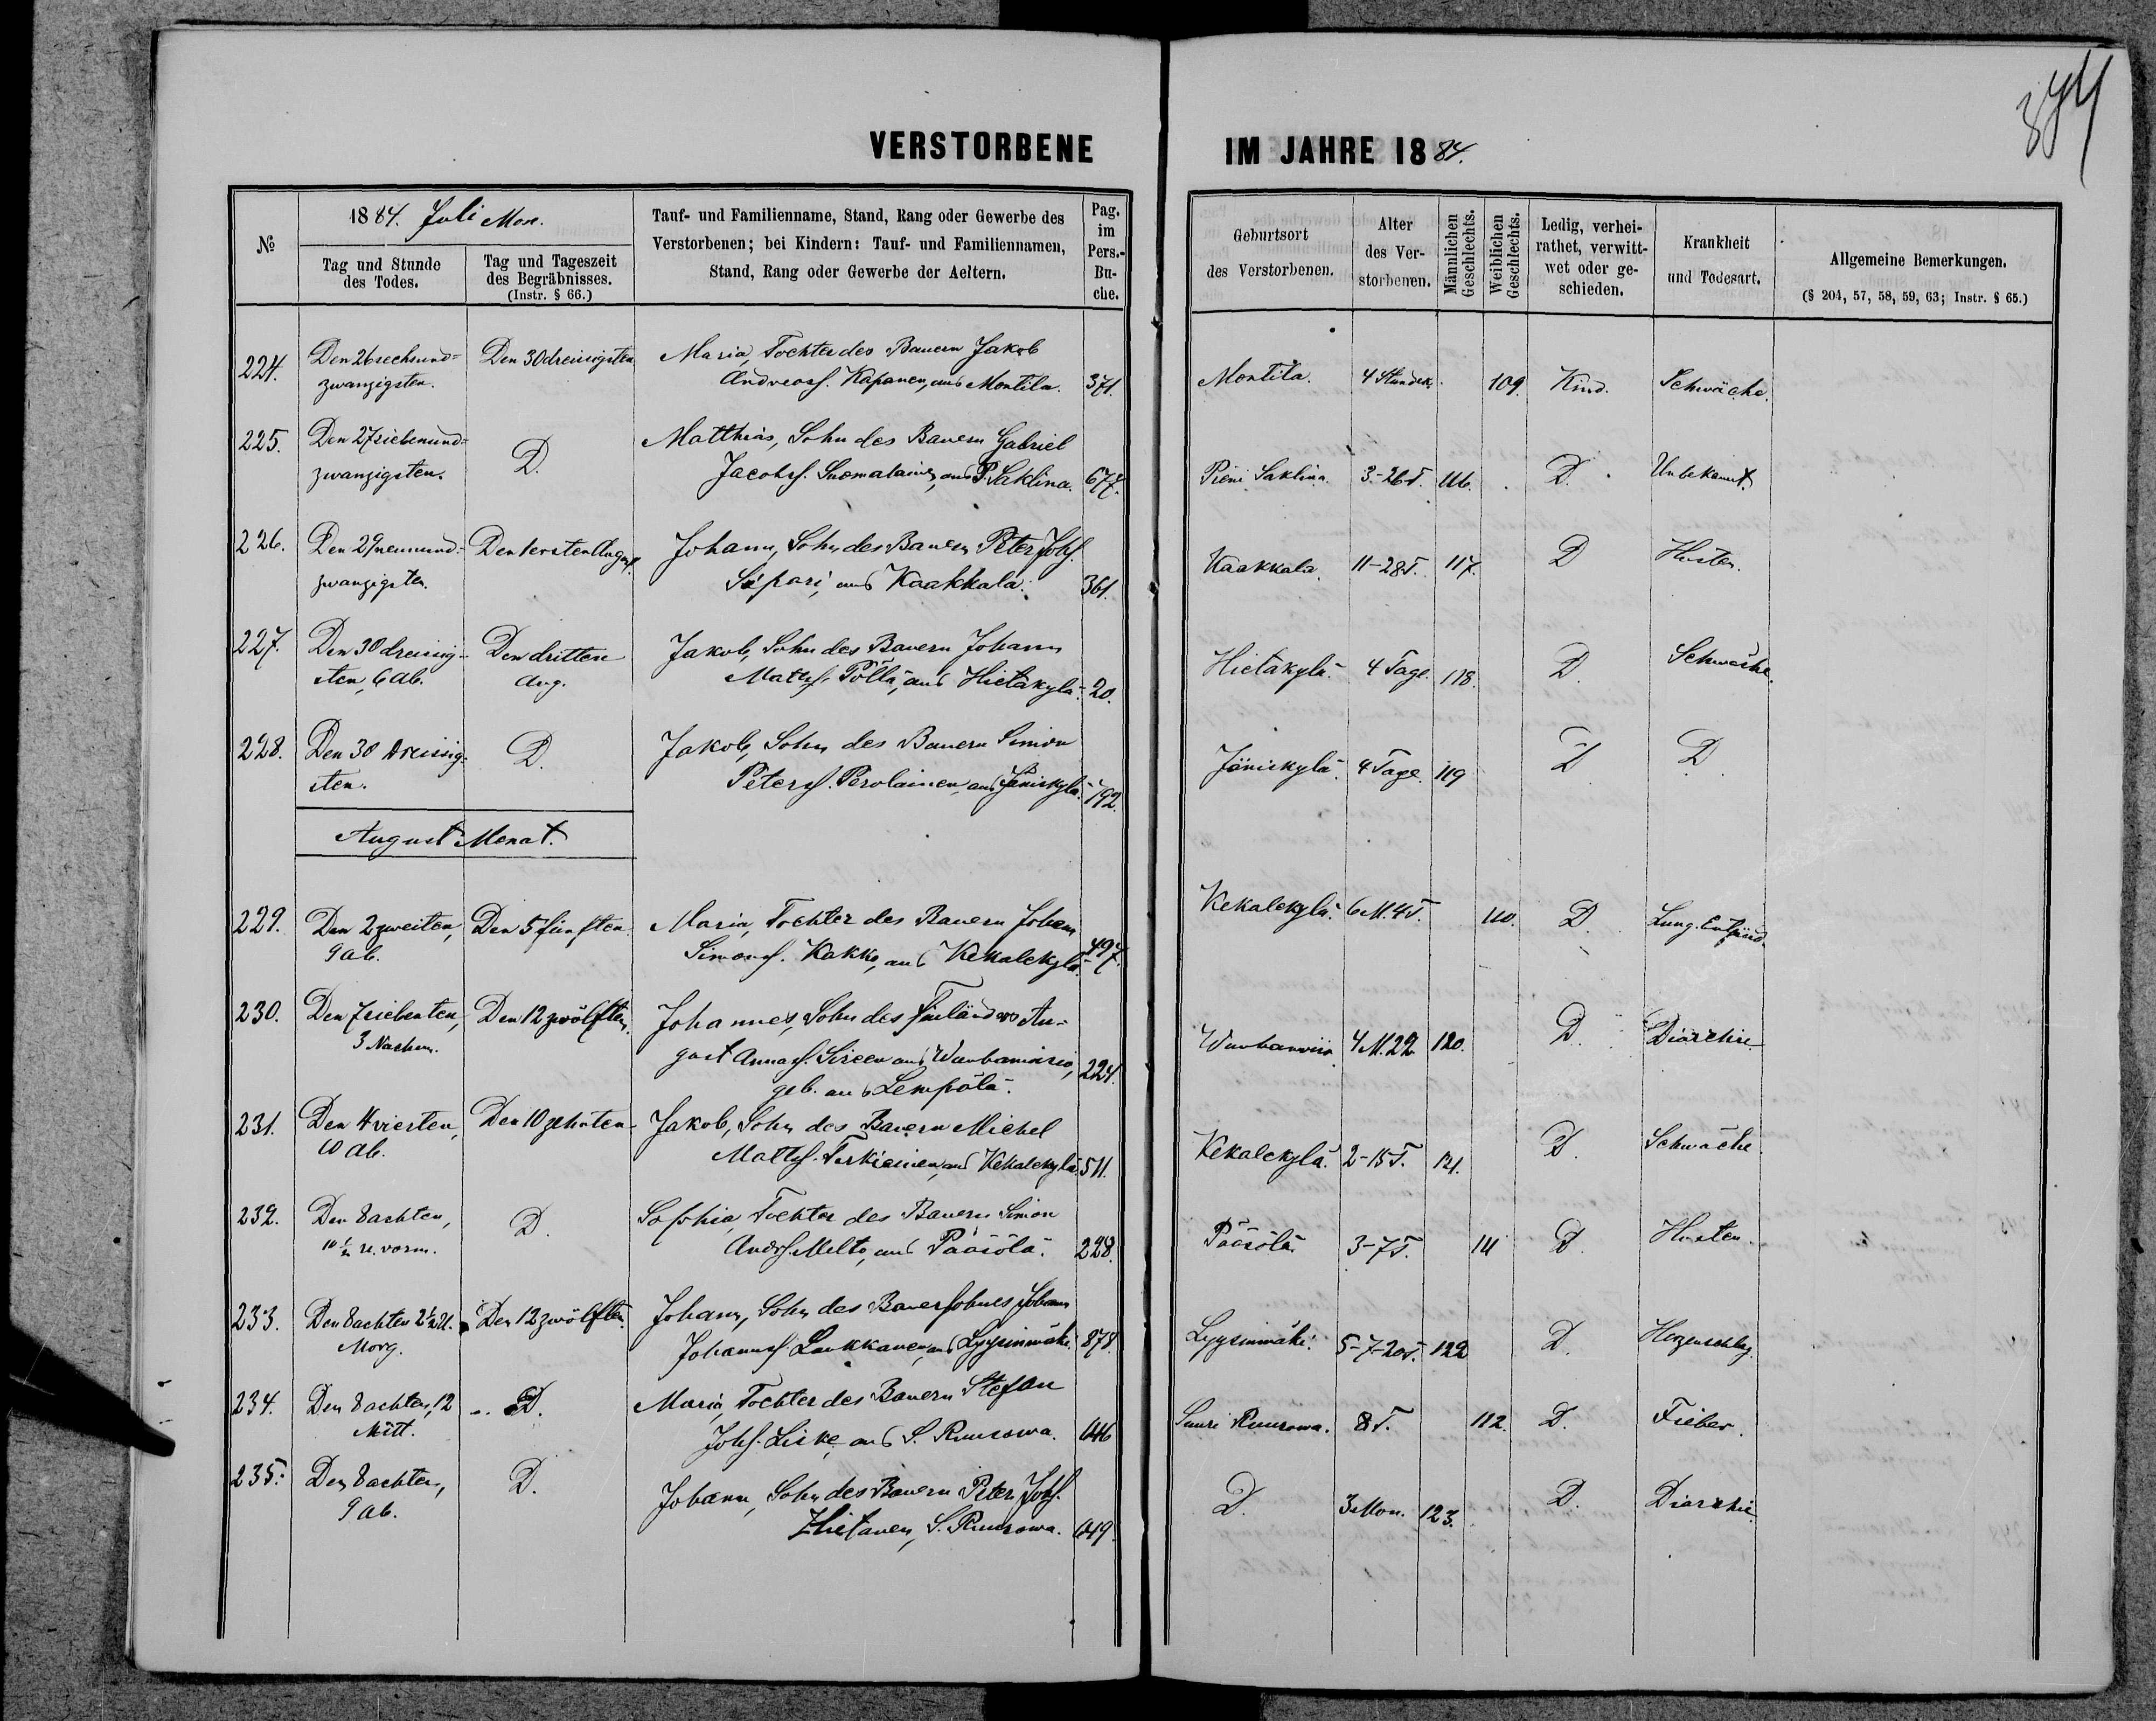 VERSTORBENE IM JAHRE 1884.
№
1884. Juli Mon.
Tag und Stunde des Todes.
Tag und Tageszeit des Begräbnisses. (Instr. § 66.)
Tauf- und Familienname, Stand, Rang oder Gewerbe des Verstorbenen; bei Kindern: Tauf- und Familiennamen, Stand, Rang oder Gewerbe der Aeltern.
Pag. im Pers.-Bu-che.
Geburtsort des Verstorbenen.
Alter des Ver-storbenen.
Männlichen Geschlechts.
Weiblichen Geschlechts.
Ledig, verhei-rathet, verwitt-wet oder ge-schieden.
Krankheit und Todesart.
Allgemeine Bemerkungen.
(§ 204, 57, 58, 59, 63; Instr. § 65.)
224. Den 26 sechsund= Den 30 dreissigsten Maria, Tochter des Bauern Jakob
zwanzigsten. Andreass. Kapanen, aus Montila. 371. Montila. 4 Stunden. 109. Kind. Schwäche.
225. Den 27 siebenund= D. Matthias, Sohn des Bauern Gabriel
zwanzigsten. Jacobs. Suomalainen, aus P. Saklina. 677. Pieni Saklina. 3-26 T. 116. D. Unbekannt.
226. Den 29 neunund= Den 1 ersten August. Johann, Sohn des Bauern Peter Johs.
zwanzigsten. Sipari, aus Kaakkala. 361. Kaakkala. 11-28 T. 117. D Husten.
227. Den 30 dreissig- Den dritten Jakob, Sohn des Bauern Johann
sten, 6 Ab. Aug. Matths. Pöllä, aus Hietakylä. 20. Hietakylä. 4 Tage. 118. D. Schwäche.
228. Den 30 dreissig= D. Jakob, Sohn des Bauern Simon
sten. Peters. Perolainen, aus Jäniskylä. 192. Jäniskylä. 4 Tage. 119 D D.
August Monat.
229. Den 2 zweiten, Den 5 fünften. Maria, Tochter des Bauern Johann
9 Ab. Simons. Kakko, aus Kekalekylä. 497. Kekalekylä. 6 M. 4 T. 110. D. Lung. Entzünd.
230. Den 7 siebenten, Den 12 zwölften. Johannes, Sohn des Finländers Au=
3 Nachm. gust Annas. Sireen aus
geb. aus Lempälä. 224. 4 M. 22 120. D. Diarrhie
231. Den 4 vierten, Den 10 zehnten Jakob, Sohn des Bauern Michel
10 Ab. Matths. Turkiainen, aus Kekalekylä. 511. Kekalekylä. 2-15 T. 121. D. Schwäche.
232. Den 8 achten, D. Sophia, Tochter des Bauern Simon
10 ½ U. vorm. Ands. Melto, aus Pääsölä. 228. Pääsölä. 3-7 T. 111 D. Husten.
233. Den 8 achten 2½ U. Den 12 zwölften. Johann, Sohn des Bauersohnes Johann
Morg. Johanns. Laukkanen, aus Lyysinmäki. 878. Lyysinmäki. 5-7-20 T. 122 D.
234. Den 8 achten, 12 D. Maria, Tochter des Bauern Stefan
Mitt. Johs. Liske, aus S. Ruusowa. 646 Suuri Ruusowa. 8 T. 112. D. Fieber.
235. Den 8 achten, D. Johann, Sohn des Bauern Peter Johs.
9 Ab. Hietanen, S. Ruusowa. 649. D. 3 Mon. 123. D. Diarrhie.